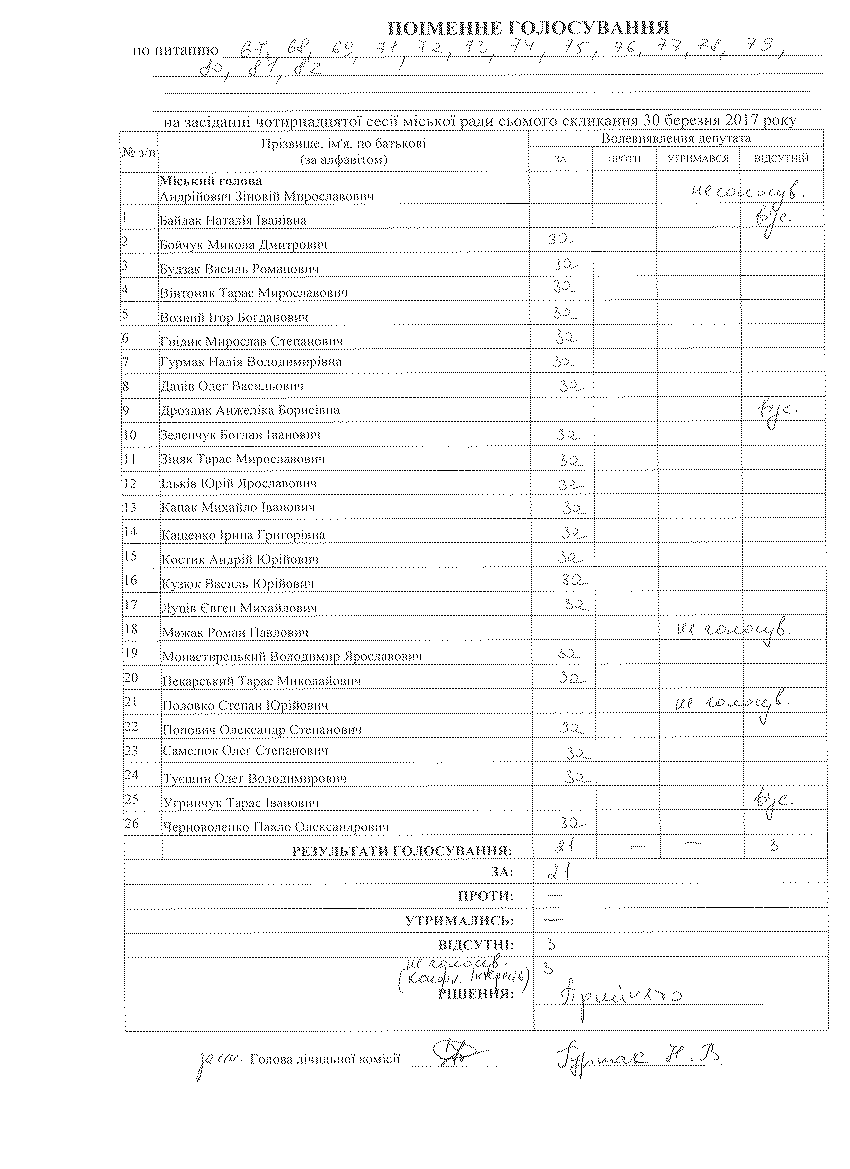 ПОІМЕННЕ ГОЛОСУВАННЯ
по питанню 67, 68, 69, 71, 72, 73, 74, 75, 76, 77, 78, 79,
80, 81, 82
на засіданні чотирнадцятої сесії міської ради сьомого скликання 30 березня 2017 року
№ з/п Прізвище, ім'я, по батькові (за алфавітом) Волевиявлення депутата
ЗА ПРОТИ УТРИМАВСЯ ВІДСУТНІЙ
Міський голова
Андрійович Зіновій Мирославович не голосув.
1 Байдак Наталія Іванівна відс.
2 Бойчук Микола Дмитрович за
3 Будзак Василь Романович за
4 Вінтоняк Тарас Мирославович за
5 Возний Ігор Богданович за
6 Гнідик Мирослав Степанович за
7 Гурмак Надія Володимирівна за
8 Даців Олег Васильович за
9 Дроздик Анжеліка Борисівна відс.
10 Зеленчук Богдан Іванович за
11 Зіняк Тарас Мирославович за
12 Ільків Юрій Ярославович за
13 Капак Михайло Іванович за
14 Кащенко Ірина Григорівна за
15 Костик Андрій Юрійович за
16 Кузюк Василь Юрійович за
17 Луців Євген Михайлович за
18 Мажак Роман Павлович не голосув.
19 Монастирецький Володимир Ярославович за
20 Пекарський Тарас Миколайович за
21 Половко Степан Юрійович не голосув.
22 Попович Олександр Степанович за
23 Самелюк Олег Степанович за
24 Туєшин Олег Володимирович за
25 Угринчук Тарас Іванович відс.
26 Черноволенко Павло Олександрович за
РЕЗУЛЬТАТИ ГОЛОСУВАННЯ: 21 — — 3
ЗА: 21
ПРОТИ: —
УТРИМАЛИСЬ: —
ВІДСУТНІ: 3
не голосув. 3
(конфл. інтересів)
РІШЕННЯ: Прийнято
заст. Голова лічильної комісії Гурмак Н. В